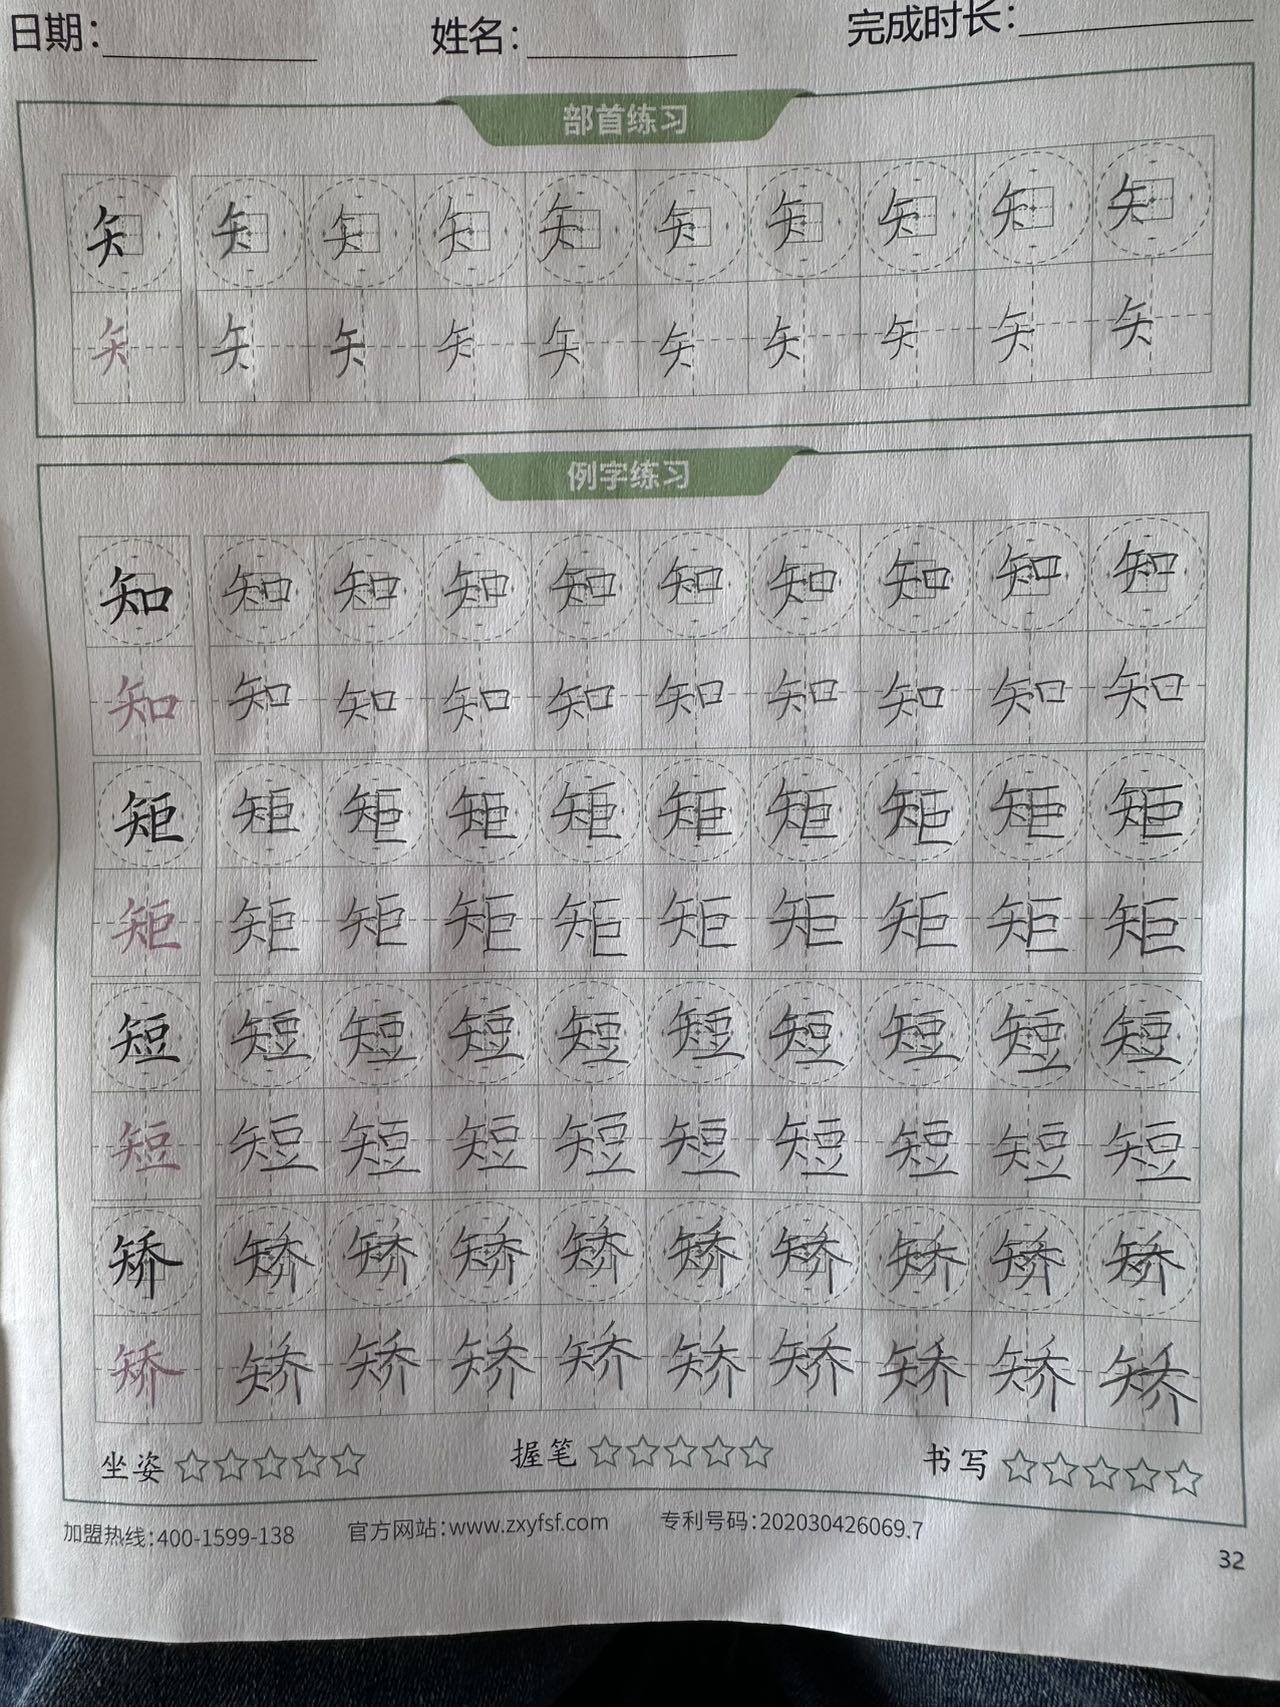 日期： 姓名： 完成时长：
部首练习
矢 矢 矢 矢 矢 矢 矢 矢 矢 矢
矢 矢 矢 矢 矢 矢 矢 矢 矢 矢
例字练习
知 知 知 知 知 知 知 知 知 知
知 知 知 知 知 知 知 知 知 知
矩 矩 矩 矩 矩 矩 矩 矩 矩 矩
矩 矩 矩 矩 矩 矩 矩 矩 矩 矩
短 短 短 短 短 短 短 短 短 短
短 短 短 短 短 短 短 短 短 短
矫 矫 矫 矫 矫 矫 矫 矫 矫 矫
矫 矫 矫 矫 矫 矫 矫 矫 矫 矫
坐姿 ☆☆☆☆☆ 握笔 ☆☆☆☆☆ 书写 ☆☆☆☆☆
加盟热线：400-1599-138 官方网站：www.zxyfsf.com 专利号码：202030426069.7
32